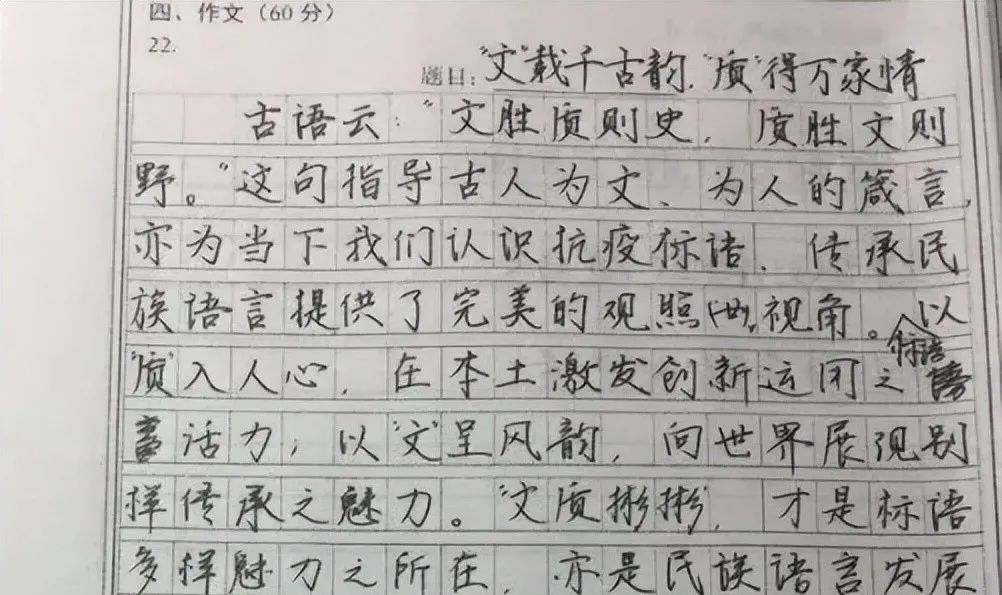 四、作文（60分）
22.
题目："文"载千古韵，"质"得万家情
古语云："文胜质则史，质胜文则
野。"这句指导古人为文、为人的箴言，
亦为当下我们认识抗疫标语、传承民
族语言提供了完美的观照视角。以
"质"入人心，在本土激发创新运用之标语
活力；以"文"呈风韵，向世界展现别
样传承之魅力。"文质彬彬"，才是标语
多样魅力之所在，亦是民族语言发展